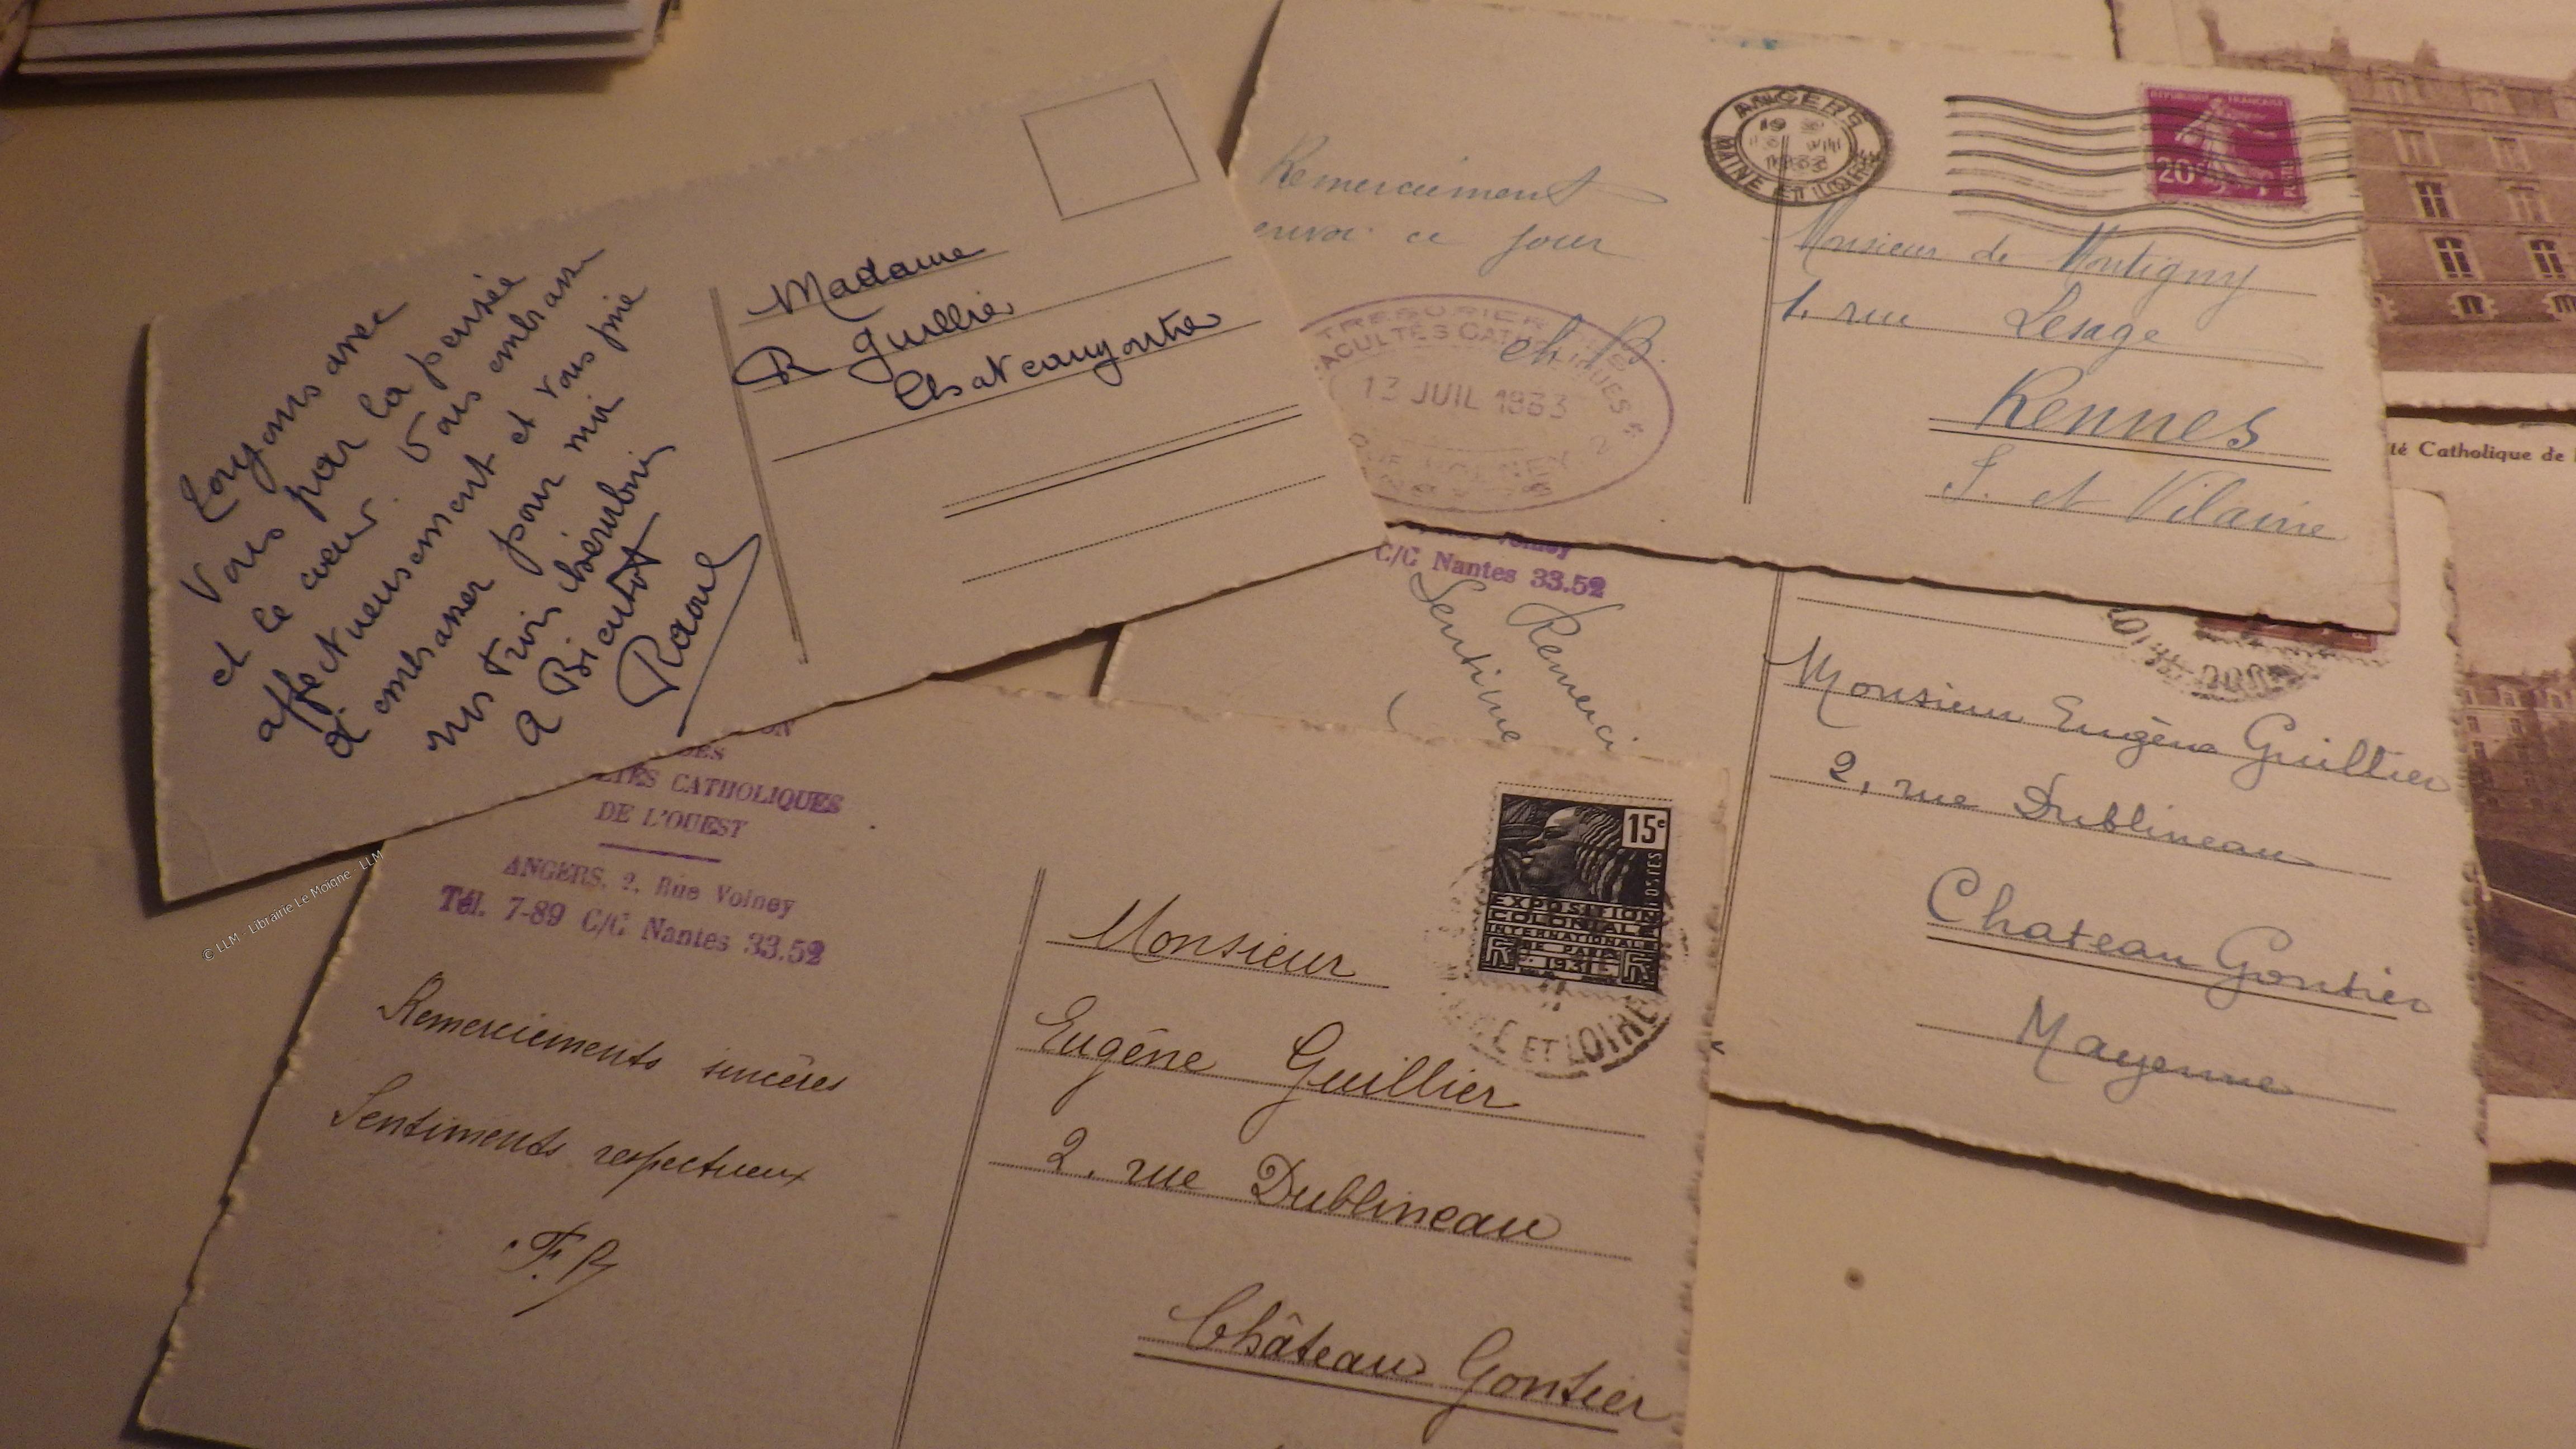 Soyons avec
vous par la pensée
et le coeur. Vous embrasse
affectueusement et vous prie
d'embrasser pour moi
nos trois chérubins
A Bientot
Raoul
Madame
R Guillier
Chateaugontier
Remerciement
envoi ce jour
ch. B.
TRESORIER DES
FACULTÉS CATHOLIQUES
13 JUIL 1933
ANGERS
MAINE ET LOIRE
REPUBLIQUE FRANCAISE
20c
POSTES
Monsieur de Montigny
1. rue Lesage
Rennes
I. et Vilaine
té Catholique de
Volney
C/C Nantes 33.52
Remerci
Sentime
Monsieur Eugène Guillier
2, rue Dublineau
Chateau Gontier
Mayenne
DES
LTÉS CATHOLIQUES
DE L'OUEST
ANGERS, 2, Rue Volney
Tél. 7-89 C/C Nantes 33.52
Remerciements sincères
Sentiments respectueux
F. B
15c
POSTES
EXPOSITION
COLONIALE
INTERNATIONALE
DE PARIS
1931
RF RF
ET LOIRE
Monsieur
Eugène Guillier
2. rue Dublineau
Château Gontier
© LLM - Librairie Le Moigne - LLM